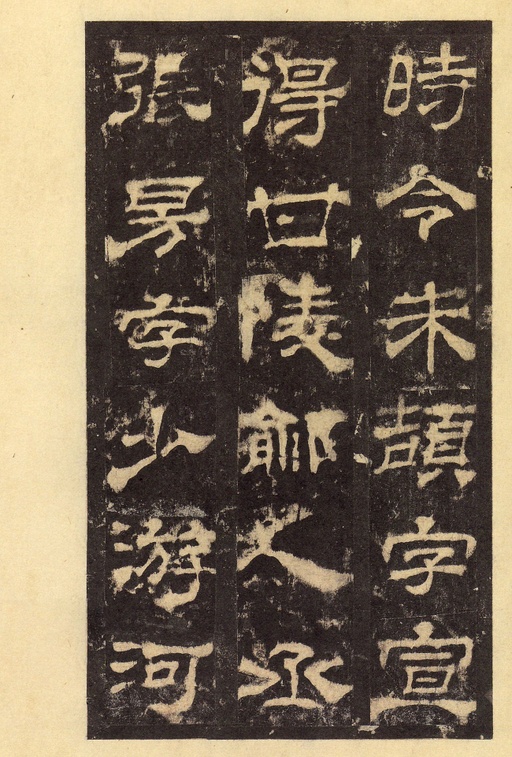 時令朱頡字宣
得甘陵鄃人丞
張昜字少游河